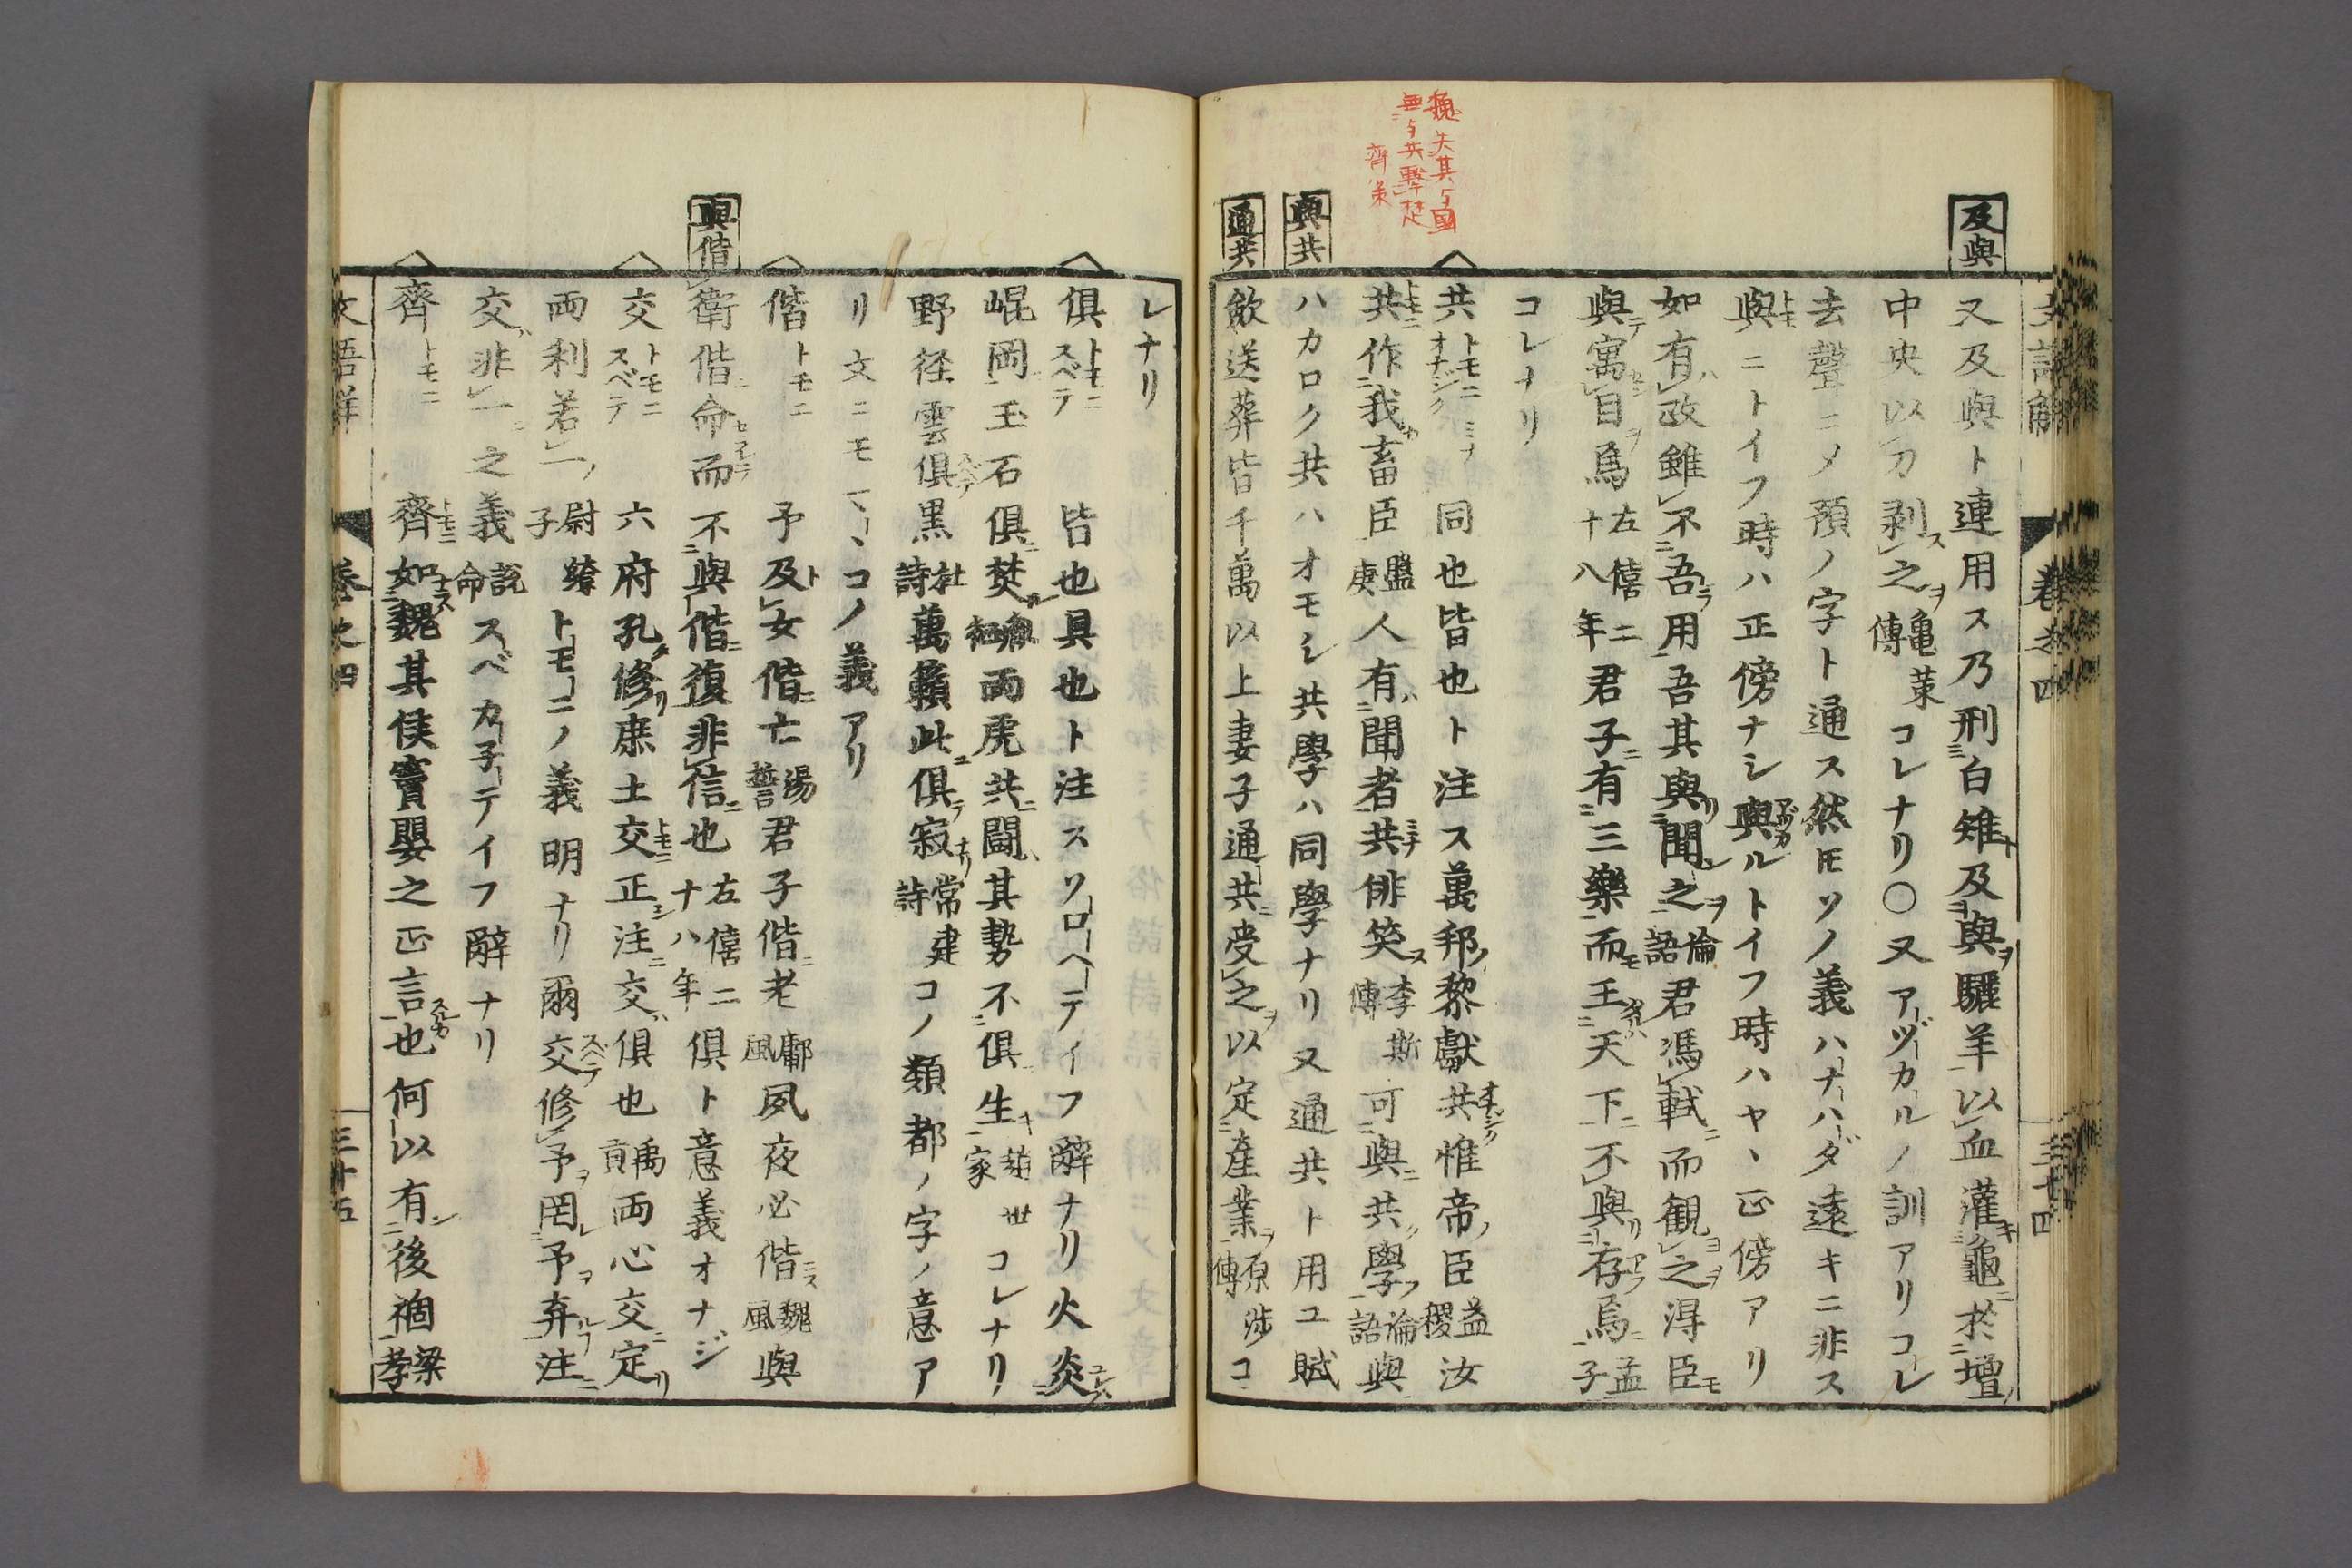 及與
又及與ト連用ス乃刑白雉及與驪羊以血灌龜於壇
中央以刀剥之亀䇿傳コレナリ〇又アヅカルノ訓アリコレ
去聲ニメ預ノ字ト通ス然ㇳモソノ義ハナハダ遠キニ非ス
與ニトイフ時ハ正傍ナシ與ルトイフ時ハヤヽ正傍アリ
如有政雖不吾用吾其與聞之論語君馮軾而観之淂臣
與寓目焉左僖二十八年君子有三樂而王天下不與存焉孟子
コレナリ
共トモニオナジクミナ 同也皆也ト注ス萬邦黎獻共惟帝臣益稷汝
共作我畜臣盤庚人有聞者共俳笑李斯傳可與共學論語與
ハカロク共ハオモシ共學ハ同學ナリ又通共ト用ユ賦
歛送葬皆千萬以上妻子通共受之以定産業原渉傳コ
魏失其与國
無与共擊楚
齊策
與共
通共
文語解 巻之四 三十四
レナリ
俱トモニスベテ 皆也具也ト注スソロヘテイフ辭ナリ火炎
崐岡玉石俱焚胤征兩虎共闘其勢不俱生趙世家コレナリ
野径雲俱黒杜詩萬籟此俱寂常建詩コノ類都ノ字ノ意ア
リ文ニモマヽコノ義アリ
偕トモニ 予及女偕亡湯誓君子偕老鄘風夙夜必偕魏風與
與偕
衛偕命而不與偕復非信也左僖二十八年俱ト意義オナジ
交トモニスベテ 六府孔修庶土交正注交俱也禹貢両心交定
両利若一尉繚子トモニノ義明ナリ爾交修予罔予弃注
交非一之義說命スベカ子テイフ辭ナリ
齊トモニ 齊如魏其侯竇嬰之正言也何以有後禍梁孝
文語解 巻之四 三十五